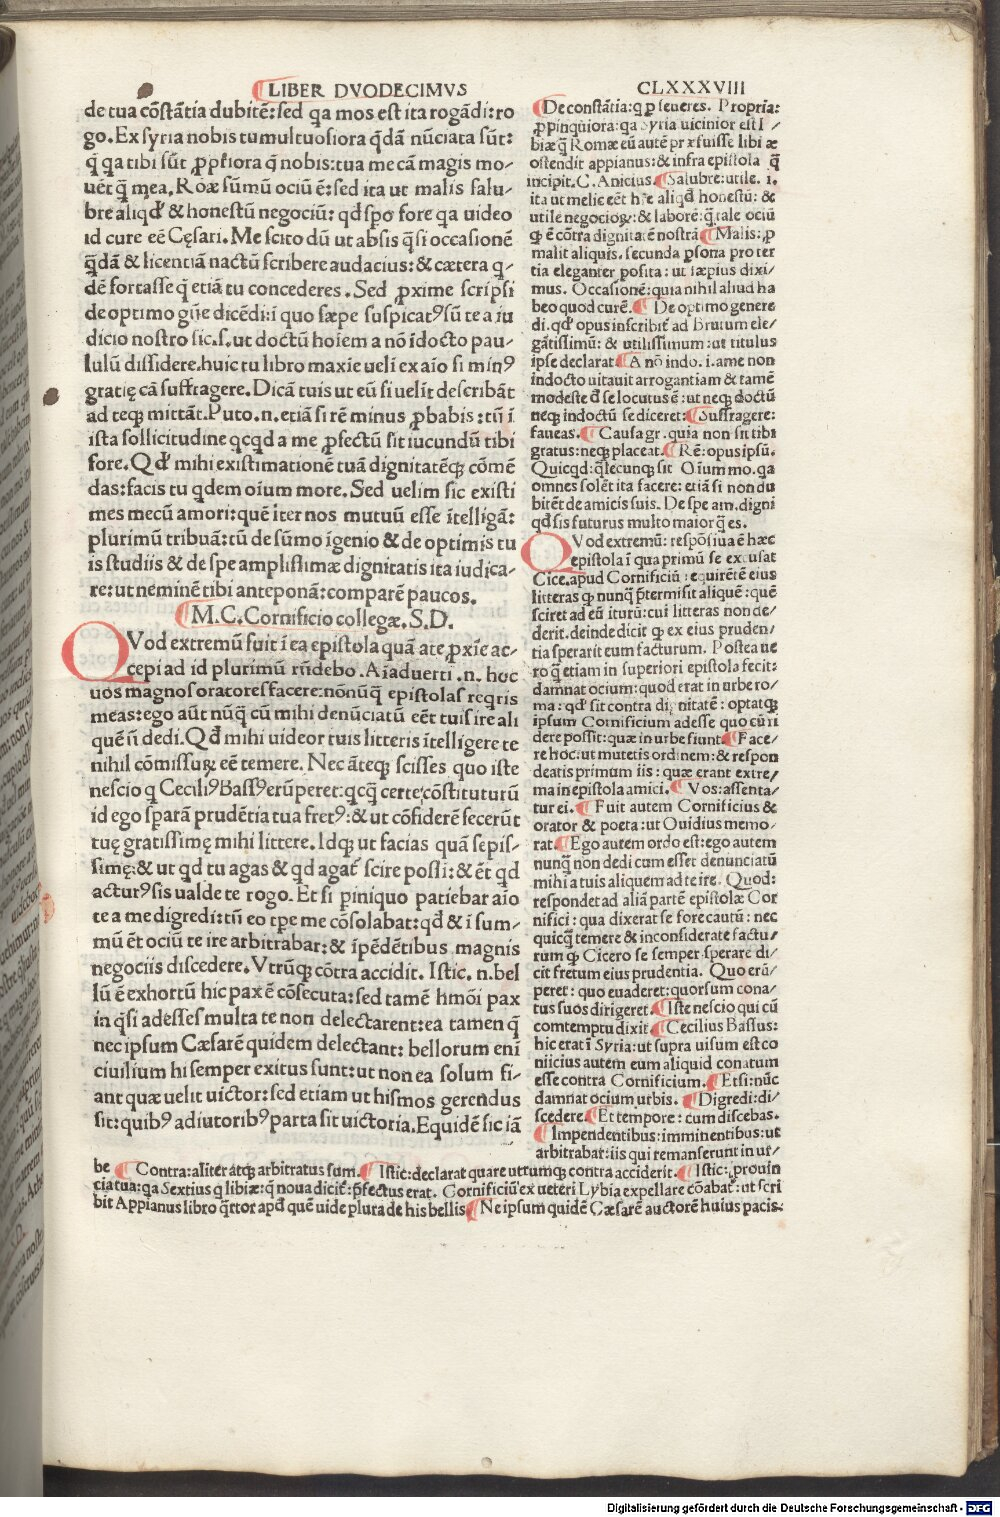 LIBER DVODECIMVS
CLXXXVIII
de tua cōstātia dubitē: sed qa mos est ita rogādi: ro
go. Ex syria nobis tumultuosiora qdā nūciata sūt:
q̄ qa tibi sūt ꝓpīora q̄ nobis: tua me cā magis mo-
uēt q̄ mea. Roæ sūmū ociū ē: sed ita ut malis salu-
bre aliqd & honestū negociū: qd spo fore qa uideo
id cure eē Cęsari. Me scito dū ut absis q̄si occasionē
q̄dā & licentiā nactū scribere audacius: & cætera q-
dē fortasse q̄ etiā tu concederes. Sed ꝓxime scripsi
de optimo gñe dicēdi: i quo sæpe suspicatꝰ sū te a iu
dicio nostro sic. s. ut doctū hoīem a nō īdocto pau-
lulū dissidere. huic tu libro maxie ueli ex aīo si minꝰ
gratię cā suffragere. Dicā tuis ut eū si uelīt describāt
ad teqꝫ mittāt. Puto. n. etiā si rē minus ꝓbabis: tū ī
ista sollicitudine qcqd a me ꝑfectū sit iucundū tibi
fore. Qd mihi existimationē tuā dignitatēqꝫ cōmē
das: facis tu qdem oīum more. Sed uelim sic existi
mes mecū amori: quē iter nos mutuū esse ītelligā:
plurimū tribuā: tū de sūmo īgenio & de optimis tu
is studiis & de spe amplissimæ dignitatis ita iudica-
re: ut neminē tibi anteponā: comparē paucos.
M. C. Cornificio collegæ. S. D.
QVod extremū fuit ī ea epistola quā a te ꝓxīe ac-
cepi ad id plurimū rñdebo. Aīaduerti. n. hoc
uos magnos oratores facere: nōnūq̄ epistolas reqris
meas: ego aūt nūq̄ cū mihi denūciatū eēt tuis ire ali
quē ñ dedi. Qd mihi uideor tuis litteris ītelligere te
nihil cōmissuꝝ eē temere. Nec āteqꝫ scisses quo iste
nescio q Ceciliꝰ Bassꝰ erūperet: qcq̄ certe cōstituturū
id ego sꝑarā prudētia tua fretꝰ: & ut cōfiderē fecerūt
tuę gratissimę mihi littere. Idqꝫ ut facias quā sepis-
simę: & ut qd tu agas & qd agat scire possi: & ēt qd
acturꝰ sis ualde te rogo. Et si piniquo patiebar aīo
te a me digredi: tū eo tpe me cōsolabat: qd & ī sum-
mū ēt ociū te ire arbitrabar: & īpēdētibus magnis
negociis discedere. Vtrūqꝫ cōtra accidit. Istic. n. bel
lū ē exhortū hic pax ē cōsecuta: sed tamē hmōi pax
in q̄ si adesses multa te non delectarent: ea tamen q̄
nec ipsum Cæsarē quidem delectant: bellorum enī
ciuilium hi semper exitus sunt: ut non ea solum fi-
ant quæ uelit uictor: sed etiam ut his mos gerendus
sit: quibꝰ adiutoribꝰ parta sit uictoria. Equidē sic iā
De constātia: q ꝑ seueres. Propria:
ꝓpinquiora: qa Syria uicinior est l-
biæ q̄ Romæ eū autē præfuisse libiæ
ostendit appianus: & infra epistola q̄
incipit. C. Anicius. Salubre: utile. i.
ita ut melie eēt hīc aliqd honestū: &
utile negocioꝝ: & laborē: q̄ tale ociū
qꝫ ē cōtra dignitatē nostrā Malis: ꝓ
malit aliquis. secunda ꝑsona pro ter
tia eleganter posita: ut sæpius dixi-
mus. Occasionē: quia nihil aliud ha
beo quod curē. De optimo genere
di. qd opus inscribit ad Brutum ele-
gātissimū: & utilissimum: ut titulus
ipse declarat A nō indo. i. a me non
indocto uitauit arrogantiam & tamē
modeste d se locutus ē: ut neqꝫ doctū
neqꝫ indoctū se diceret: Suffragere:
faueas. Causa gr. quia non sit tibi
gratus: neqꝫ placeat. Rē: opus ipsū.
Quicqd: q̄lecunqꝫ sit Oīum mo. qa
omnes solēt ita facere: etiā si non du
bitēt de amicis suis. De spe am. digni
qd sis futurus multo maior q̄ es.
QVod extremū: respōsiua ē hæc
epistola ī qua primū se excusat
Cice. apud Cornificiū: requirētē eius
litteras qꝫ nunq̄ p̄termisit aliquē: quē
sciret ad eū iturū: cui litteras non de/
derit. deinde dicit qꝫ ex eius pruden/
tia sperarit eum facturum. Postea ue
ro q̄ etiam in superiori epistola fecit:
damnat ocium: quod erat in urbe ro/
ma: qd sit contra dignitatē: optatqꝫ
ipsum Cornificium adesse quo cū ri
dere possit: quæ in urbe fiunt Face/
re hoc: ut mutetis ordinem: & respon
deatis primum iis: quæ erant extre/
ma in epistola amici. Vos: assenta/
tur ei. Fuit autem Cornificius &
orator & poeta: ut Ouidius memo-
rat. Ego autem ordo est: ego autem
nunq̄ non dedi cum esset denunciatū
mihi a tuis aliquem ad te ire. Quod:
respondet ad aliā partē epistolæ Cor
nifici: qua dixerat se fore cautū: nec
quicq̄ temere & inconsiderate factu/
rum qꝫ Cicero se semper sperare di/
cit fretum eius prudentia. Quo erū/
peret: quo euaderet: quorsum cona/
tus suos dirigeret Iste nescio qui cū
comtemptu dixit Cecilius Bassus:
hic erat ī Syria: ut supra uisum est co
niicius autem eum aliquid conatum
esse contra Cornificium. Etsi: nūc
damnat ocium urbis. Digredi: di/
scedere. Et tempore: cum discebas.
Impendentibus: imminentibus: ut
arbitrabar: iis qui remanserunt in ur/
be Contra: aliter atqꝫ arbitratus sum. Istic: declarat quare utrumqꝫ contra acciderit. Istic: ꝓuin
cia tua: qa Sextius q libiæ: q̄ noua dicit: p̄fectus erat. Cornificiū ex ueteri Lybia expellare cōabat: ut scri
bit Appianus libro q̄rtor apd quē uide plura de his bellis Ne ipsum quidē Cæsarē auctorē huius pacis:
Digitalisierung gefördert durch die Deutsche Forschungsgemeinschaft - DFG